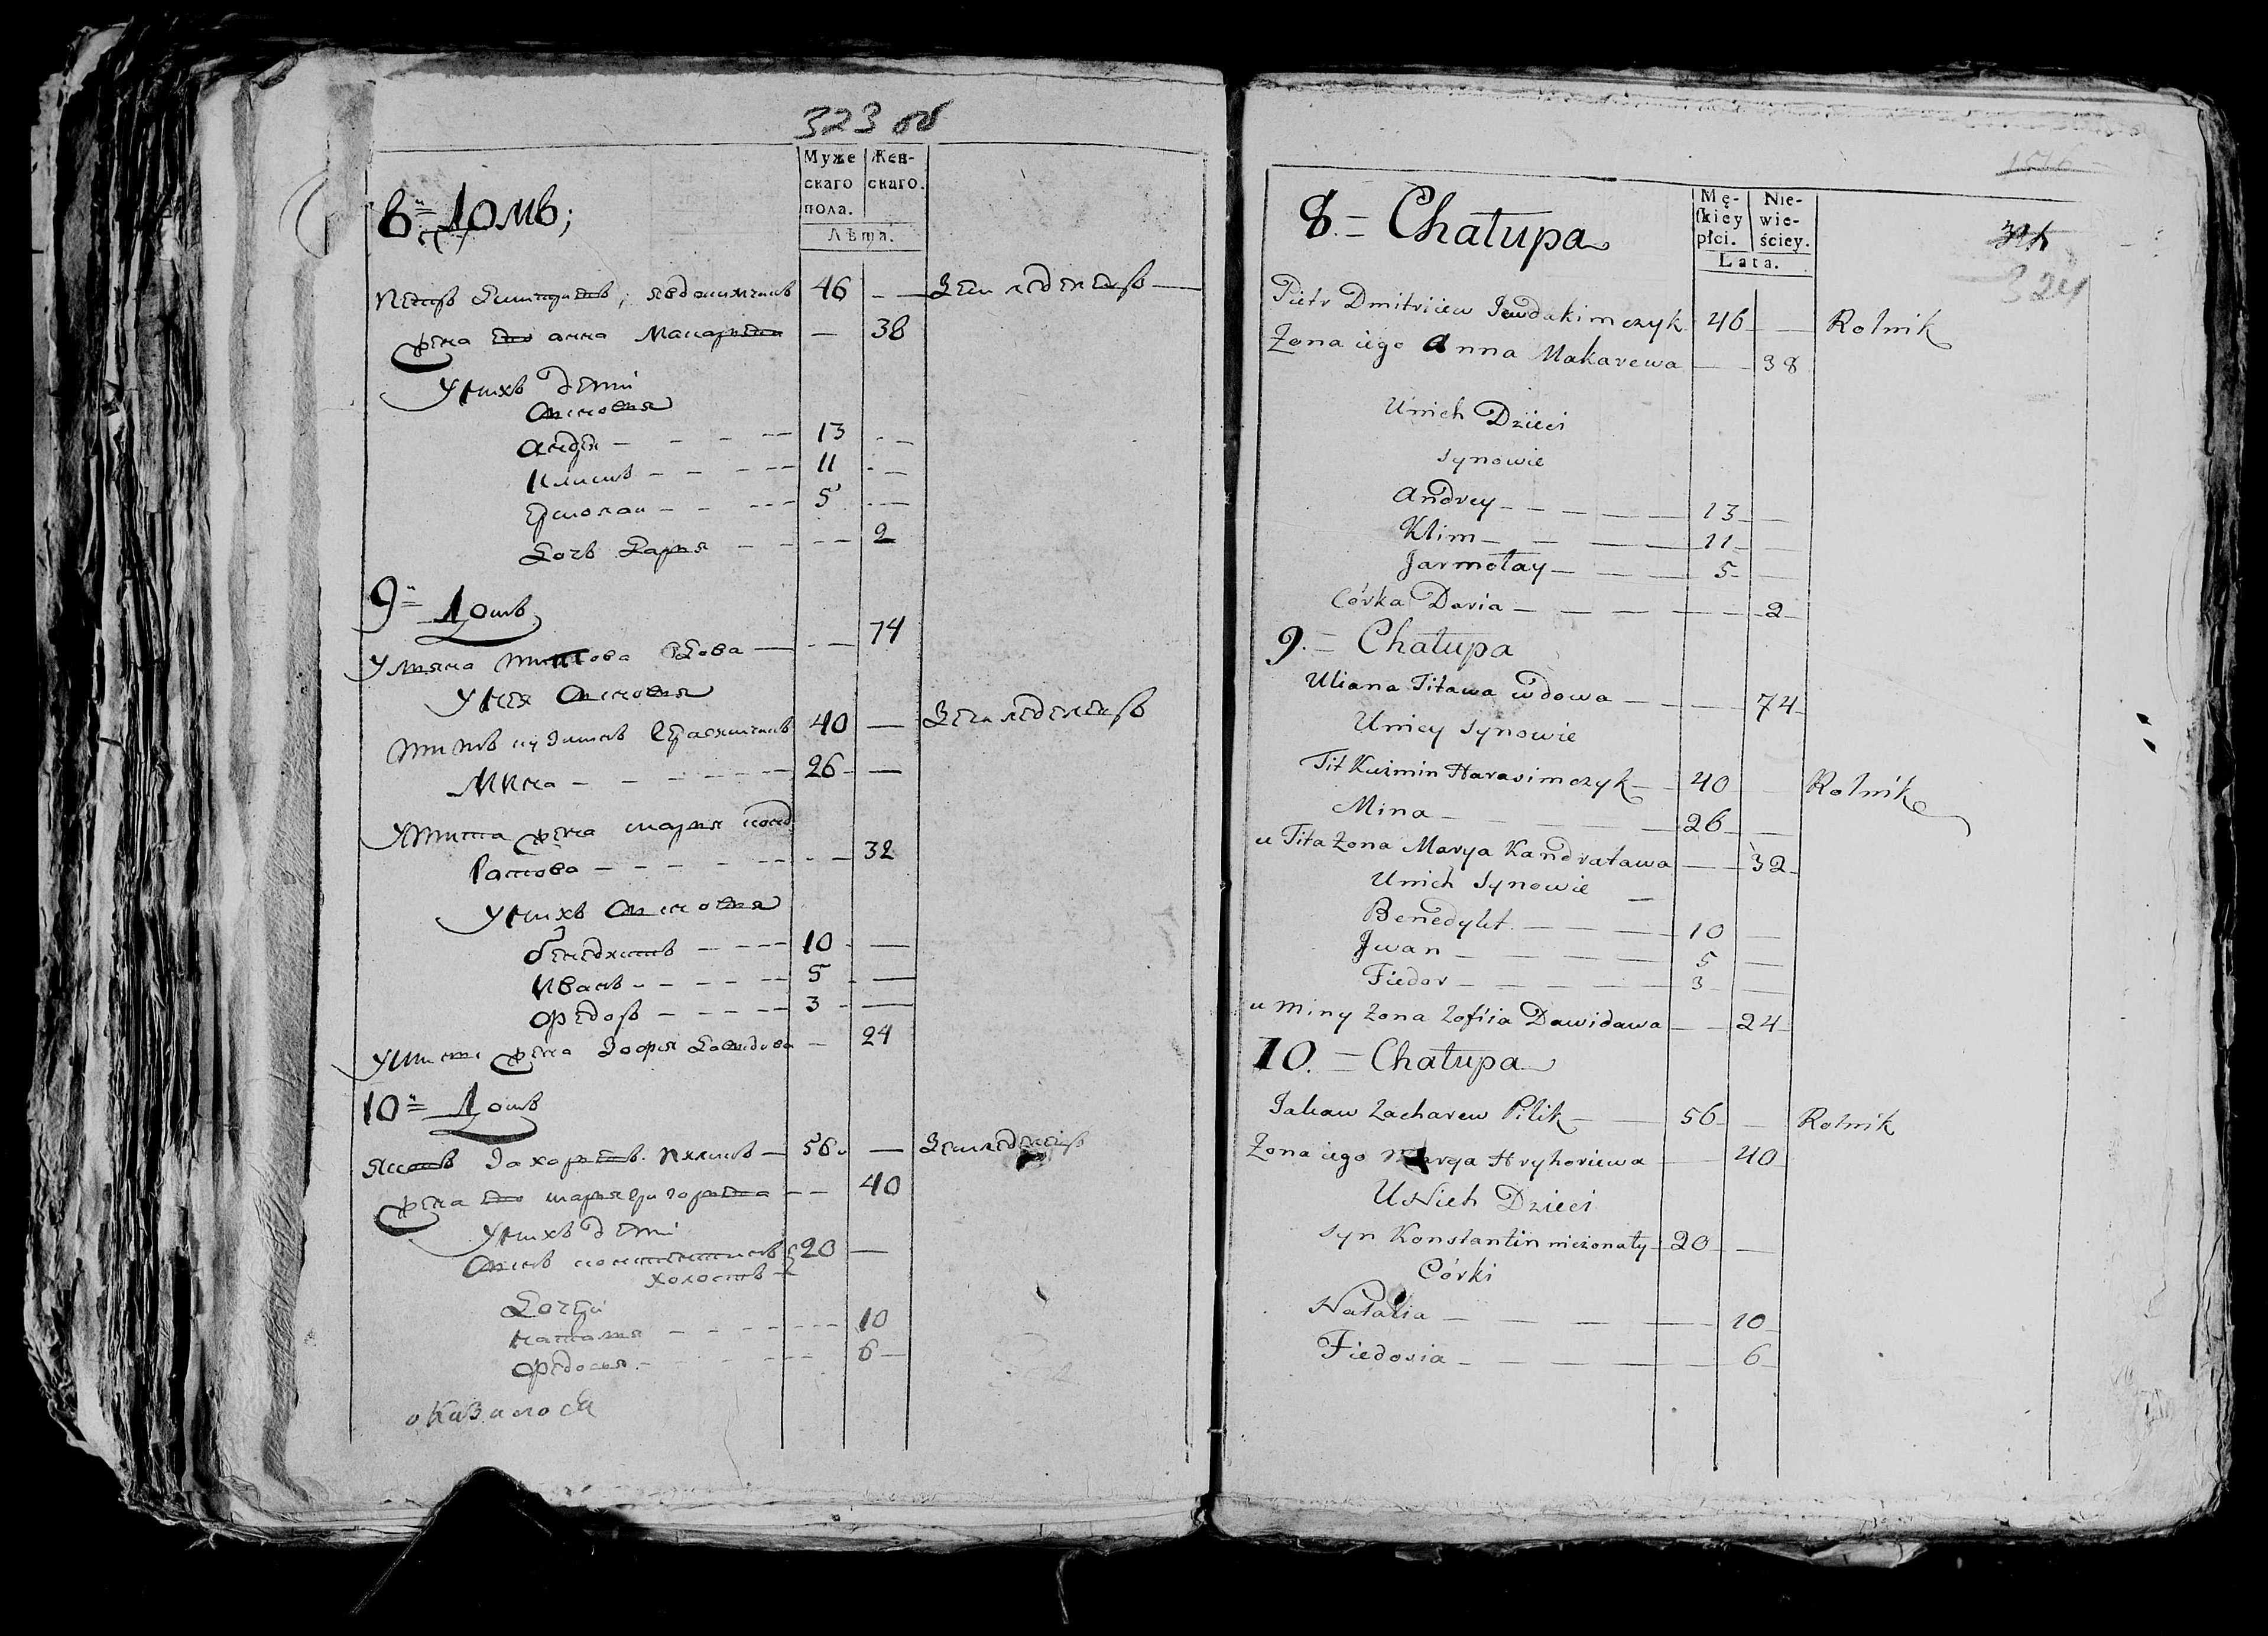 323 об
Муже
скаго
пола.
Жен-
скаго.
Лѣта.
8й Домъ;
Петръ Дмитріевъ Явдакимчикъ 46 — Земледелецъ
жена его анна Макарьева — 38
У нихъ дети
Сыновья
андрей 13
Климъ 11
Ермолай 5
Дочь Дарья 2
9й Домъ
Ульяна Титова вдова — 74
У нея Сыновья
Титъ кузминъ Герасимчикъ 40 — Земледелецъ
Мина 26
У Тита жена марья конд
ратова 32
У нихъ Сыновья
бенедыктъ 10
Иванъ 5
Федоръ 3
У Мины жена Зофия Давидова — 24
10й Домъ
Яковъ Захарьевъ Пиликъ 56 — Земледелецъ
жена его марья григорьева — 40
У нихъ дети
Сынъ константинъ 20
холостъ
Дочери
наталья 10
Федосья 6
оказалось
1516
324
Mę-
ſkiey
płci.
Nie-
wie-
ściey.
Lata.
8. Chałupa
Piotr Dmitriiew Jewdakimczyk 46 — Rolnik
Żona iego Anna Makarewa — 38
U nich Dzieci
Synowie
Andrey 13
Klim 11
Jarmołay 5
Córka Daria 2
9. Chałupa
Uliana Titawa wdowa — 74
U niey Synowie
Tit Kuźmin Harasimczyk 40 — Rolnik
Mina 26
u Tita Żona Marya Kandratawa — 32
U nich Synowie
Benedykt 10
Jwan 5
Fiedor 3
u Miny Żona Zofiia Dawidawa — 24
10. Chałupa
Jakaw Zacharew Pilik 56 — Rolnik
Żona iego Marya Hryhoriewa — 40
U Nich Dzieci
Syn Konstantin nieżonaty 20
Córki
Natalia 10
Fiedosia 6